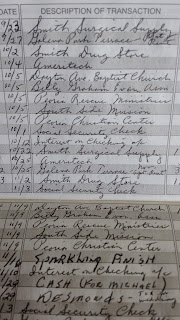 DATE DESCRIPTION OF TRANSACTION
9/23 Smith Surgical Supply
9/27 Helena Park Terrace Rent
10/2 Smith Drug Store
10/4 Ameritech
10/5 Dayton Ave. Baptist Church
10/5 Billy Graham Evan. Assn
10/5 Peoria Rescue Ministries
10/5 South Side Mission
10/5 Peoria Christian Center
10/1 Social Security Check
Interest on Checking a/c
Smith Surgical Supply
10/25 Ameritech
Park Terrace
Smith Drug Store
Social Security Check
11/9 Dayton Ave Baptist Church
11/9 Billy Graham Evan. Assn
11/9 Peoria Rescue Ministries
South Side Mission
Peoria Christian Center
SPARKLING FINISH
Interest on Checking a/c
CASH (FOR MICHAEL)
DESMONDS -
Social Security Check